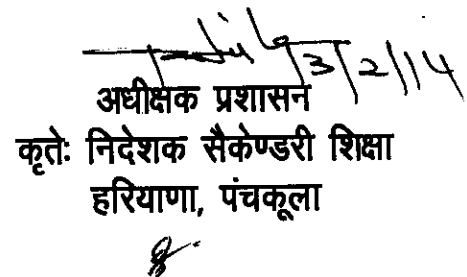 3/2/14
अधीक्षक प्रशासन
कृतेः निदेशक सैकेण्डरी शिक्षा
हरियाणा, पंचकूला